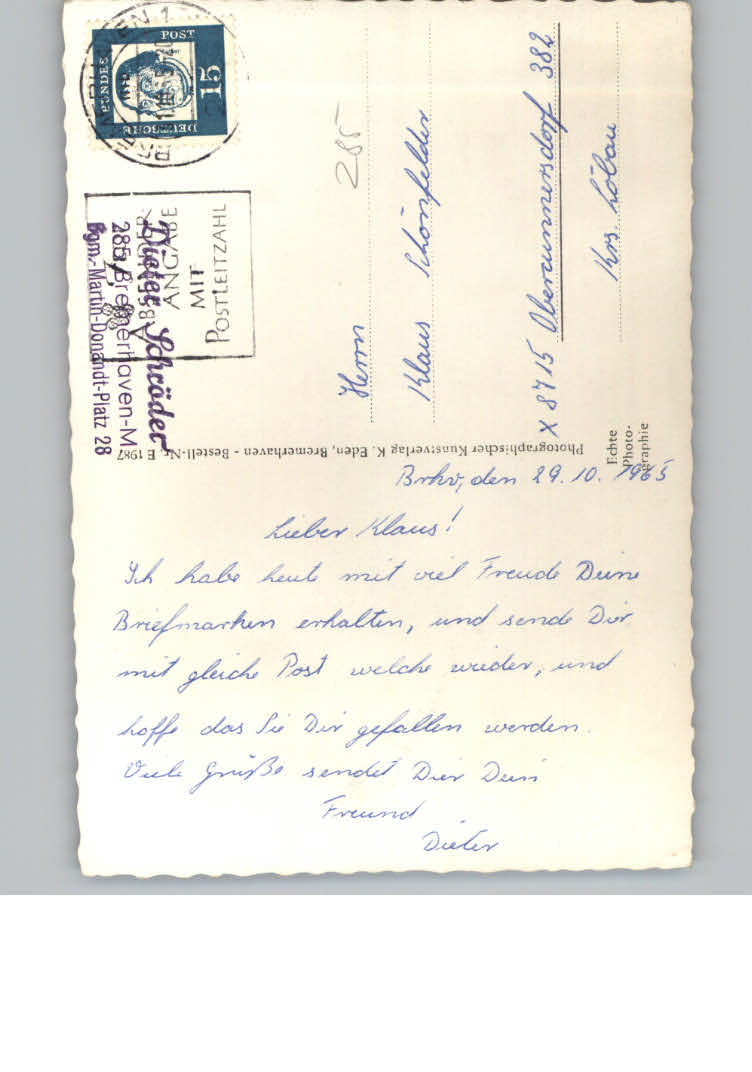 Brhv, den 29. 10. 1965
Lieber Klaus!
Ich habe heute mit viel Freude Deine
Briefmarken erhalten, und sende Dir
mit gleiche Post welche wieder, und
hoffe das Sie Dir gefallen werden.
Viele Grüße sendet Dier Dein
Freund
Dieter
Herrn
Klaus Schönfelder
X 8715 Obercunnersdorf 382
Krs. Löbau
285
DEUTSCHE
BUNDES
POST
15
ANGABE
MIT
POSTLEITZAHL
Dieter Schröder
285 Bremerhaven-M
Bgm.-Martin-Donandt-Platz 28
Photographischer Kunstverlag K. Eden, Bremerhaven - Bestell-Nr. E 1987
Echte
Photo-
graphie